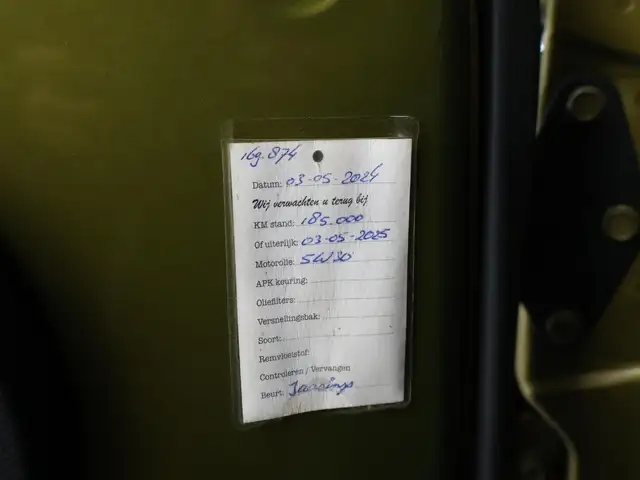 169.874
Datum: 03-05-2024
Wij verwachten u terug bij
KM stand: 185.000
Of uiterlijk: 03-05-2025
Motorolie: 5W30
APK keuring:
Oliefilters:
Versnellingsbak:
Soort:
Remvloeistof:
Controleren / Vervangen
Beurt: Jaarbeurt